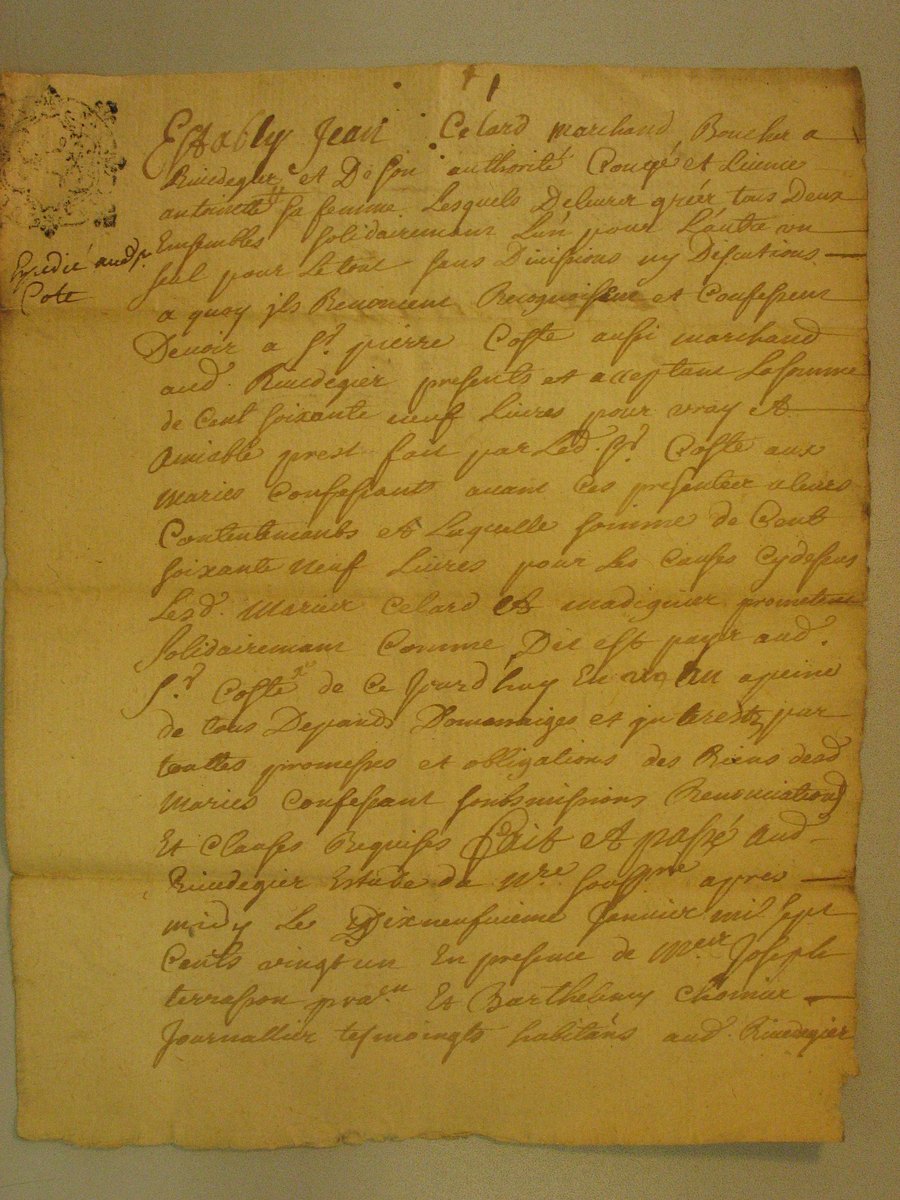 Establys Jean Celard marchand Boucher a
Rivedegier et De son authorité Congé et licence
antoinette sa femme Lesquels De leur gréer tous Deux
Ensembles solidairemant L'un pour L'autre un
seul pour Le tout sans Divissions ny Discutions
a quoy jls Renoncent Recognoissent et Confessent
Devoir a Sr. pierre Coste aussi marchand
aud. Rivedegier presents et acceptant La somme
de Cent soixante neuf Livres pour vray et
Amiable prest fait par Led. Sr. Coste aux
maries Confessants avant ces presentes a leurs
Contentemants et Laquelle somme de Cent
soixante neuf Livres pour Les Causes Cydessus
Lesd. Maries Celard et madignier promettent
solidairemant Comme Dit est payer aud.
Sr. Coste de Ce Jourd'huy En un An a peine
de tous Depands Dommaiges et jnterestz par
touttes promesses et obligations des Biens desd
Maries Confessant soubsmissions Renonciations
Et Clauses Requises Fait et passé aud
Rivedegier Estude de Nre soussne apres
midy Le Dixneufvieme Janvier mil sept
Cents vingt un En presence de Meir Joseph
terrasson pra.en Et Barthelmy Chomier
Journallier tesmoingts habitans aud Rivedegier
Expedié aud Sr.
Cote